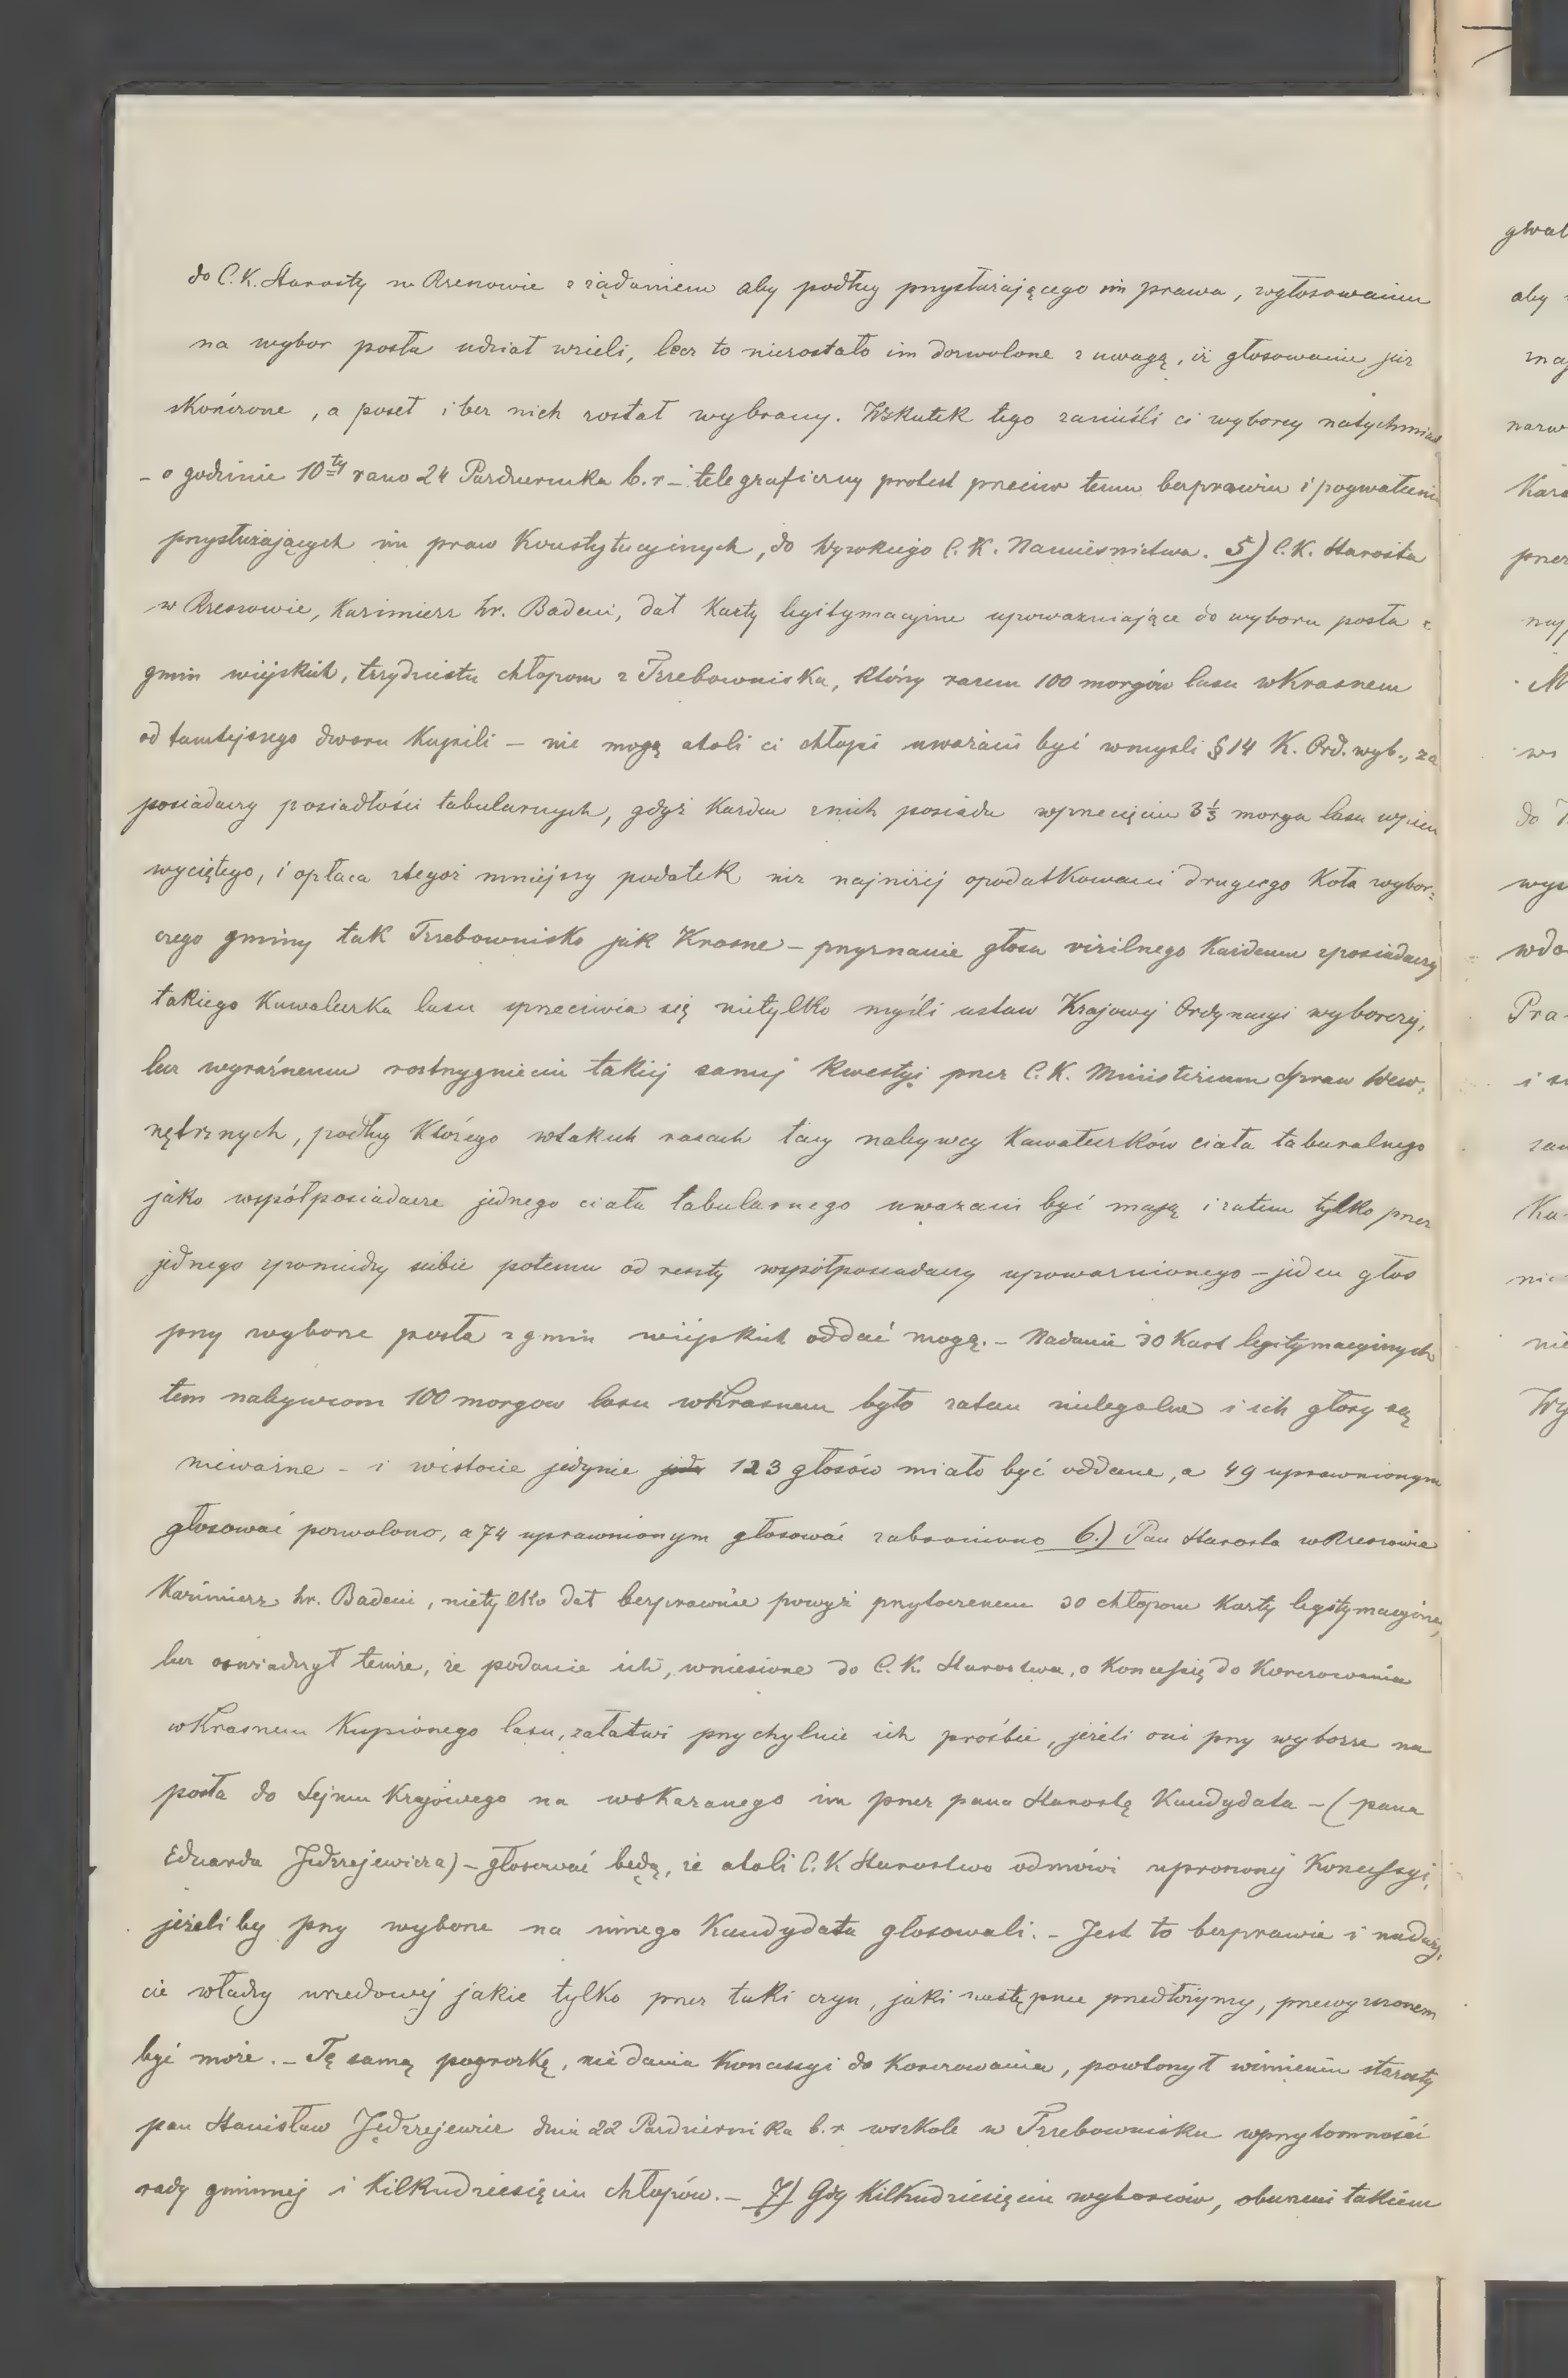 do C.K. Starosty w Rzeszowie z żądaniem aby podług przysłużającego im prawa, wgłosowaniu
na wybor posła udział wzieli, lecz to niezostało im dozwolone z uwagą, iż głosowanie już
skończone, a poseł i bez nich został wybrany. Wskutek tego zanieśli ci wyborcy natychmiast
- o godzinie 10tej rano 24 Pazdziernika b.r - telegraficzny protest przeciw temu bezprawiu i pogwałceniu
przysłużających im praw Konstytucyjnych, do Wysokiego C.K. Namiesnictwa. 5) C.K. Starosta
w Rzeszowie, Kazimierz hr. Badeni, dał Karty legitymacyjne upoważniające do wyboru posła z
gmin wiejskich, trzydziestu chłopom z Trzebowniska, którzy razem 100 morgów lasu wKrasnem
od tamtejszego dworu Kupili - nie mogą atoli ci chłopi uważani być wmyśli § 14 K. Ord. wyb., za
posiadaczy posiadłości tabularnych, gdyż Każden znich posiada wprzecięciu 3 1/3 morga lasu wpien
wyciętego, i opłaca ztegoż mniejszy podatek niż najniżej opodatkowani drugiego Koła wybor=
czego gminy tak Trzebownisko jak Krasne - przyznanie głosu virilnego Każdemu zposiadaczy
takiego Kawałecka lasu sprzeciwia się nietylko myśli ustaw Krajowej Ordynacyi wyborczej,
lecz wyraźnemu rostrzygnieciu takiej samej Kwestyi przez C.K. Ministerium Spraw Wew=
nętrznych, podług Którego wtakich razach tacy nabywcy Kawałeczków ciała taburalnego
jako współposiadacze jednego ciała tabularnego uważani być mają i zatem tylko przez
jednego zpomiedzy siebie potemu od reszty współposiadaczy upoważnionego - jeden głos
przy wyborze posła z gmin wiejskich oddać mogą. - Nadanie 30 Kart legitymacyjnych
tem nabywcom 100 morgow lasu wKrasnem było zatem nielegalne i ich głosy są
nieważne - i wistocie jedynie 123 głosów miało być oddane, a 49 uprawnionym
głosować pozwolono, a 74 uprawnionym głosować zabroniono 6.) Pan Starosta wRzeszowie
Kazimierz hr. Badeni, nietylko dał bezprawnie powyż przytoczonem 30 chłopom Karty legitymacyjne,
lecz oswiadczył temże, że podanie ich, wniesione do C.K. Starostwa, o Koncessię do Korczowania
wKrasnem Kupionego lasu, załatwi przychylnie ich prośbie, jeżeli oni przy wyborze na
posła do Sejmu Krajowego na wskazanego im przez pana Starostę Kandydata - (pana
Eduarda Jędrzejewicza) - głosować będą, że atoli C.K Starostwo odmówi uproszonej Koncessyi,
jeżeli by przy wyborze na innego Kandydata głosowali. - Jest to bezprawie i naduży=
cie władzy urzedowej jakie tylko przez taki czyn, jaki nastę pnie przedłożymy, przewyższonem
być może. - Tę samą pogrozkę, nie dania Koncessyi do Korczowania, powtorzył wimieniu starosty
pan Stanisław Jędrzejewicz dnia 22 Pazdziernika b.r wszkole w Trzebownisku wprzytomności
rady gminnej i Kilkudziesięciu chłopów. - 7) Gdy Kilkudziesięciu wyborców, oburzeni takiem